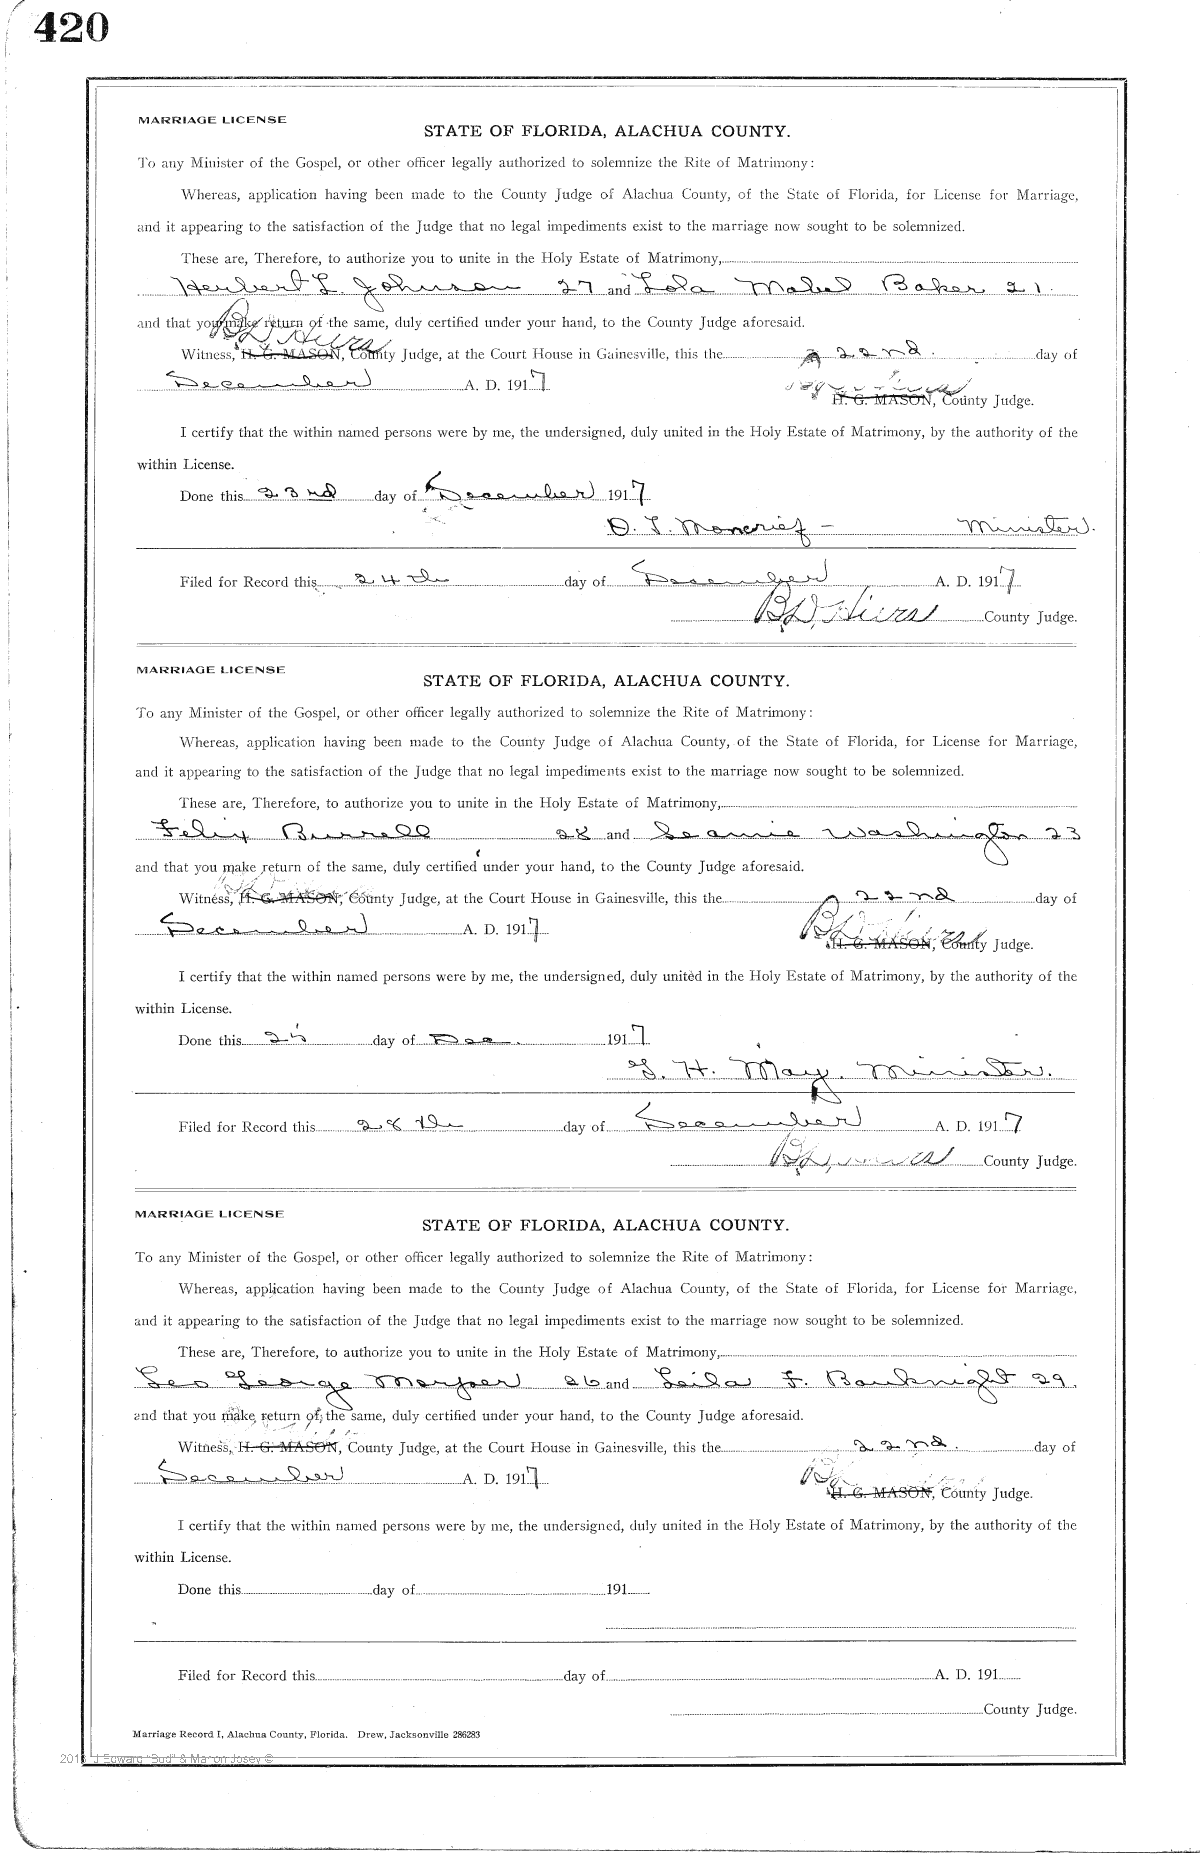 420
MARRIAGE LICENSE
STATE OF FLORIDA, ALACHUA COUNTY.
To any Minister of the Gospel, or other officer legally authorized to solemnize the Rite of Matrimony:
Whereas, application having been made to the County Judge of Alachua County, of the State of Florida, for License for Marriage,
and it appearing to the satisfaction of the Judge that no legal impediments exist to the marriage now sought to be solemnized.
These are, Therefore, to authorize you to unite in the Holy Estate of Matrimony,
Herbert L. Johnson 27 and Lola Mabel Baker 21.
and that you make return of the same, duly certified under your hand, to the County Judge aforesaid.
B D Hiers
Witness, H. G. MASON, County Judge, at the Court House in Gainesville, this the 22nd. day of
December A. D. 1917
H. G. MASON, County Judge.
I certify that the within named persons were by me, the undersigned, duly united in the Holy Estate of Matrimony, by the authority of the
within License.
Done this 23rd day of December 1917
D. T. Moncrief - Minister.
Filed for Record this 24th day of December A. D. 1917
B, D, Hiers County Judge.
MARRIAGE LICENSE
STATE OF FLORIDA, ALACHUA COUNTY.
To any Minister of the Gospel, or other officer legally authorized to solemnize the Rite of Matrimony:
Whereas, application having been made to the County Judge of Alachua County, of the State of Florida, for License for Marriage,
and it appearing to the satisfaction of the Judge that no legal impediments exist to the marriage now sought to be solemnized.
These are, Therefore, to authorize you to unite in the Holy Estate of Matrimony,
Felix Burrell 28 and Washington 23
and that you make return of the same, duly certified under your hand, to the County Judge aforesaid.
Witness, H. G. MASON, County Judge, at the Court House in Gainesville, this the 22nd day of
December A. D. 1917
B D Hiers
H. G. MASON, County Judge.
I certify that the within named persons were by me, the undersigned, duly united in the Holy Estate of Matrimony, by the authority of the
within License.
Done this 25 day of Dec. 1917
G. H. May. Minister.
Filed for Record this 28th day of December A. D. 1917
B, D, Hiers County Judge.
MARRIAGE LICENSE
STATE OF FLORIDA, ALACHUA COUNTY.
To any Minister of the Gospel, or other officer legally authorized to solemnize the Rite of Matrimony:
Whereas, application having been made to the County Judge of Alachua County, of the State of Florida, for License for Marriage,
and it appearing to the satisfaction of the Judge that no legal impediments exist to the marriage now sought to be solemnized.
These are, Therefore, to authorize you to unite in the Holy Estate of Matrimony,
Leo George 26 and Leila F. Bouknight 29.
and that you make return of the same, duly certified under your hand, to the County Judge aforesaid.
Witness, H. G. MASON, County Judge, at the Court House in Gainesville, this the 22nd. day of
December A. D. 1917
H. G. MASON, County Judge.
I certify that the within named persons were by me, the undersigned, duly united in the Holy Estate of Matrimony, by the authority of the
within License.
Done this day of 191
Filed for Record this day of A. D. 191
County Judge.
Marriage Record I, Alachua County, Florida. Drew, Jacksonville 286283
J Edward "Bud" & Marion Josey ©